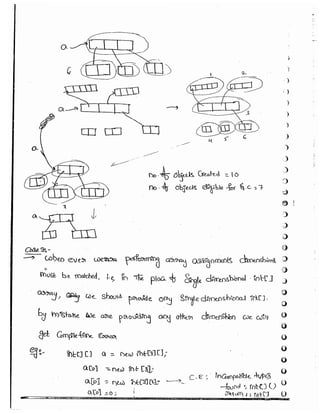 a
6
1 2
a
3
4 5 6
a
no. of objects created = 10
no. of objects eligible for GC = 7
7
a
Case 3:-
→ when ever performing array assignments dimensions
must be matched. i.e in the place of Single dimensional int[]
array, we should provide only Single dimensional int[].
by mistake we are providing any other dimension we will
get Compile time Error
eg:- int[][] a = new int[3][];
a[0] = new int[3];
a[0] = new int[3][2]; → C.E : Incompatible types
a[0] = 0; found : int[][]
int[]